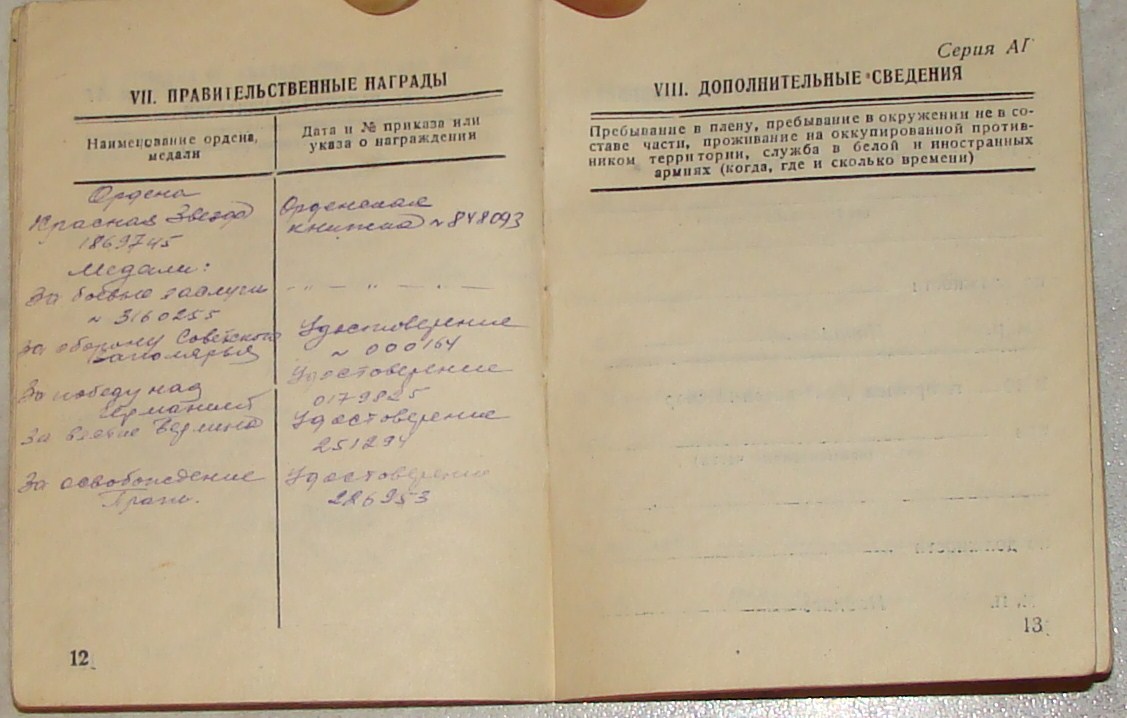 VII. ПРАВИТЕЛЬСТВЕННЫЕ НАГРАДЫ
Наименование ордена,
медали
Дата и № приказа или
указа о награждении
Ордена
Красная Звезда
1869745
Орденская
книжка № 848093
Медали:
За боевые заслуги
№ 3160255
— „ — „ — „ —
За оборону Советского
Заполярья
Удостоверение
№ 000164
За победу над
Германией
Удостоверение
0179825
За взятие Берлина
Удостоверение
251294
За освобождение
Праги.
Удостоверение
226953
12
Серия АГ
VIII. ДОПОЛНИТЕЛЬНЫЕ СВЕДЕНИЯ
Пребывание в плену, пребывание в окружении не в со-
ставе части, проживание на оккупированной против-
ником территории, служба в белой и иностранных
армиях (когда, где и сколько времени)
13